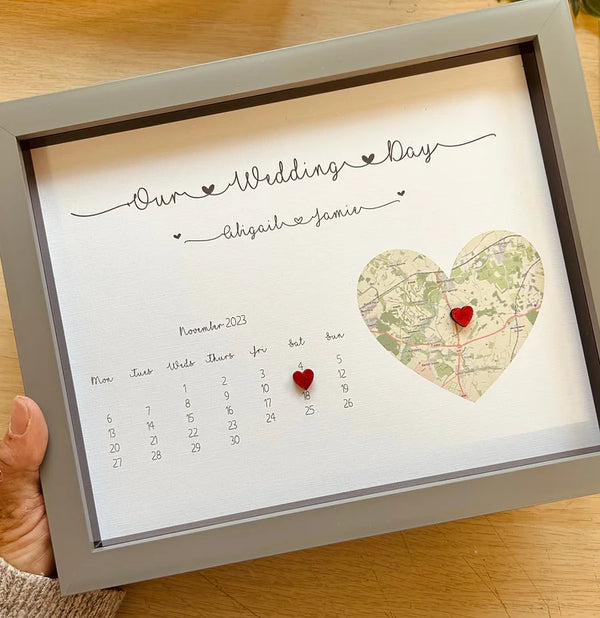 Our Wedding Day
Abigail Jamie
November 2023
Mon Tues Weds Thurs Fri Sat Sun
1 2 3 4 5
6 7 8 9 10 12
13 14 15 16 17 18 19
20 21 22 23 24 25 26
27 28 29 30